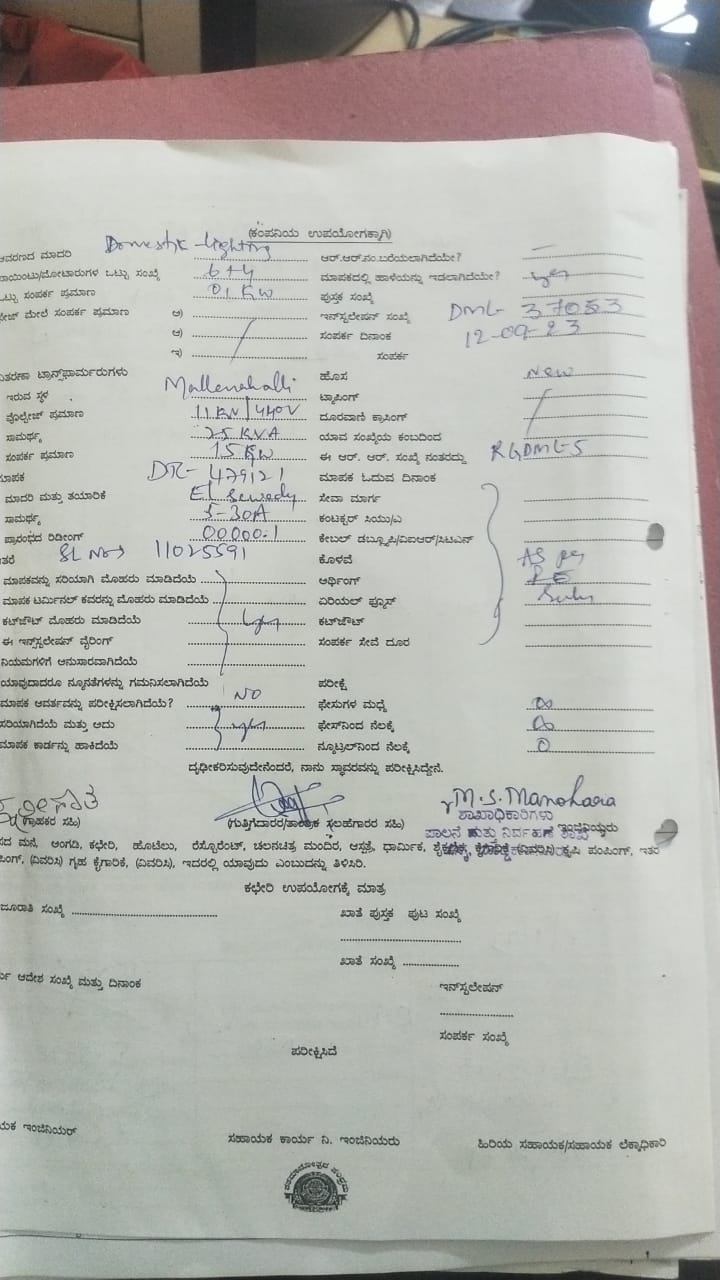 (ಕಂಪನಿಯ ಉಪಯೋಗಕ್ಕಾಗಿ)
ಆವರಣದ ಮಾದರಿ Domestic lighting ಆರ್.ಆರ್.ನಂ.ಬರೆಯಲಾಗಿದೆಯೇ? —
ಪಾಯಿಂಟು/ಮೋಟಾರುಗಳ ಒಟ್ಟು ಸಂಖ್ಯೆ 6+4 ಮಾಪಕದಲ್ಲಿ ಹಾಳೆಯನ್ನು ಇಡಲಾಗಿದೆಯೇ? yes
ಒಟ್ಟು ಸಂಪರ್ಕ ಪ್ರಮಾಣ 01 KW ಪುಸ್ತಕ ಸಂಖ್ಯೆ
ಫೇಜ್ ಮೇಲೆ ಸಂಪರ್ಕ ಪ್ರಮಾಣ ಅ) ಇನ್‌ಸ್ಟಲೇಷನ್ ಸಂಖ್ಯೆ DML 37053
ಆ) ಸಂಪರ್ಕ ದಿನಾಂಕ 12-09-23
ಇ) ಸಂಪರ್ಕ
ವಿತರಣಾ ಟ್ರಾನ್ಸ್‌ಫಾರ್ಮರುಗಳು ಹೊಸ New
ಇರುವ ಸ್ಥಳ Mallenahalli ಟ್ಯಾಪಿಂಗ್
ವೋಲ್ಟೇಜ್ ಪ್ರಮಾಣ 11KV/440V ದೂರವಾಣಿ ಕ್ರಾಸಿಂಗ್
ಸಾಮರ್ಥ್ಯ 25 KVA ಯಾವ ಸಂಖ್ಯೆಯ ಕಂಬದಿಂದ
ಸಂಪರ್ಕ ಪ್ರಮಾಣ 15 KW ಈ ಆರ್. ಆರ್. ಸಂಖ್ಯೆ ನಂತರದ್ದು RGDML5
ಮಾಪಕ DR- 479121 ಮಾಪಕ ಓದುವ ದಿನಾಂಕ
ಮಾದರಿ ಮತ್ತು ತಯಾರಿಕೆ El Sewedy ಸೇವಾ ಮಾರ್ಗ
ಸಾಮರ್ಥ್ಯ 5-30A ಕಂಟಕ್ಟರ್ ಸಿಯು/ಎ
ಪ್ರಾರಂಭದ ರಿಡೀಂಗ್ 00000.1 ಕೇಬಲ್ ಡಬ್ಲ್ಯೂಪಿ/ವಿಐಆರ್/ಸಿಟಿಎಸ್
ಇತರೆ SL No 11025591 ಕೊಳವೆ As per
ಮಾಪಕವನ್ನು ಸರಿಯಾಗಿ ಮೊಹರು ಮಾಡಿದೆಯೆ ಅರ್ಥಿಂಗ್
ಮಾಪಕ ಟರ್ಮಿನಲ್ ಕವರನ್ನು ಮೊಹರು ಮಾಡಿದೆಯೆ ಏರಿಯಲ್ ಫ್ಯೂಸ್
ಕಟ್‌ಔಟ್ ಮೊಹರು ಮಾಡಿದೆಯೆ yes ಕಟ್‌ಔಟ್
ಈ ಇನ್‌ಸ್ಟಲೇಷನ್ ವೈರಿಂಗ್ ಸಂಪರ್ಕ ಸೇವೆ ದೂರ
ನಿಯಮಗಳಿಗೆ ಅನುಸಾರವಾಗಿದೆಯೆ
ಯಾವುದಾದರೂ ನ್ಯೂನತೆಗಳನ್ನು ಗಮನಿಸಲಾಗಿದೆಯೆ NO ಪರೀಕ್ಷೆ
ಮಾಪಕ ಆವರ್ತವನ್ನು ಪರೀಕ್ಷಿಸಲಾಗಿದೆಯೆ? ಫೇಸುಗಳ ಮಧ್ಯೆ ∞
ಸರಿಯಾಗಿದೆಯೆ ಮತ್ತು ಅದು yes ಫೇಸ್‌ನಿಂದ ನೆಲಕ್ಕೆ ∞
ಮಾಪಕ ಕಾರ್ಡನ್ನು ಹಾಕಿದೆಯೆ ನ್ಯೂಟ್ರಲ್‌ನಿಂದ ನೆಲಕ್ಕೆ 0
ದೃಢೀಕರಿಸುವುದೇನೆಂದರೆ, ನಾನು ಸ್ಥಾವರವನ್ನು ಪರೀಕ್ಷಿಸಿದ್ದೇನೆ.
M.S. Manohara
ಶಾಖಾಧಿಕಾರಿಗಳು
(ಗ್ರಾಹಕರ ಸಹಿ) (ಗುತ್ತಿಗೆದಾರರ/ತಾಂತ್ರಿಕ ಸಲಹೆಗಾರರ ಸಹಿ) ಪಾಲನೆ ಮತ್ತು ನಿರ್ವಹಣೆ ಇಂಜಿನಿಯರು
ಮನೆ, ಅಂಗಡಿ, ಕಛೇರಿ, ಹೋಟೆಲು, ರೆಸ್ಟೋರೆಂಟ್, ಚಲನಚಿತ್ರ ಮಂದಿರ, ಆಸ್ಪತ್ರೆ, ಧಾರ್ಮಿಕ, ಶೈಕ್ಷಣಿಕ, ಕೈಗಾರಿಕೆ (ವಿವರಿಸಿ) ಕೃಷಿ ಪಂಪಿಂಗ್, ಇತರ
(ವಿವರಿಸಿ) ಗೃಹ ಕೈಗಾರಿಕೆ, (ವಿವರಿಸಿ), ಇದರಲ್ಲಿ ಯಾವುದು ಎಂಬುದನ್ನು ತಿಳಿಸಿರಿ.
ಕಛೇರಿ ಉಪಯೋಗಕ್ಕೆ ಮಾತ್ರ
ಮಂಜೂರಾತಿ ಸಂಖ್ಯೆ ಖಾತೆ ಪುಸ್ತಕ ಪುಟ ಸಂಖ್ಯೆ
ಖಾತೆ ಸಂಖ್ಯೆ
ಆದೇಶ ಸಂಖ್ಯೆ ಮತ್ತು ದಿನಾಂಕ ಇನ್‌ಸ್ಟಲೇಷನ್
ಸಂಪರ್ಕ ಸಂಖ್ಯೆ
ಪರೀಕ್ಷಿಸಿದೆ
ಇಂಜಿನಿಯರ್ ಸಹಾಯಕ ಕಾರ್ಯ ನಿ. ಇಂಜಿನಿಯರು ಹಿರಿಯ ಸಹಾಯಕ/ಸಹಾಯಕ ಲೆಕ್ಕಾಧಿಕಾರಿ